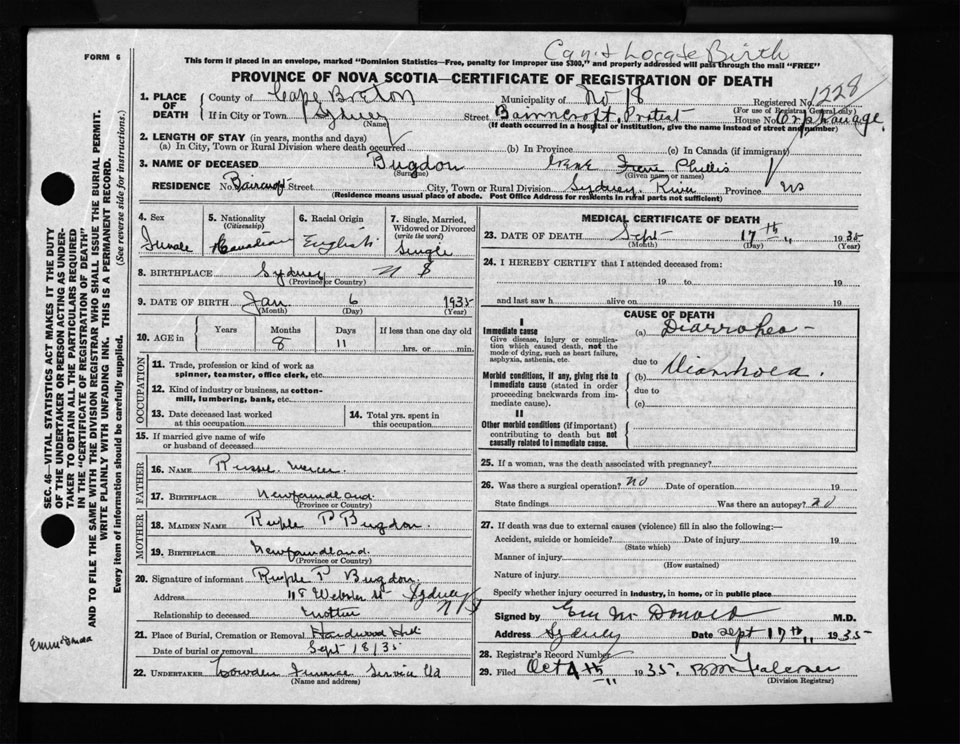 Can't Locate Birth
FORM 6
This form if placed in an envelope, marked "Dominion Statistics—Free, penalty for improper use $300," and properly addressed will pass through the mail "FREE"
PROVINCE OF NOVA SCOTIA—CERTIFICATE OF REGISTRATION OF DEATH
1. PLACE OF DEATH
County of Cape Breton Municipality of No 18 Registered No. 1228
(For use of Registrar General only)
If in City or Town Sydney Street Bairncroft Protest House No. Orphanage
(Name) (If death occurred in a hospital or institution, give the name instead of street and number)
2. LENGTH OF STAY (in years, months and days)
(a) In City, Town or Rural Division where death occurred (b) In Province (c) In Canada (if immigrant)
3. NAME OF DECEASED Bugdon Irene Irene Phillis
(Surname) (Given name or names)
RESIDENCE No. Baircroft Street City, Town or Rural Division Sydney River Province NS
(Residence means usual place of abode. Post Office Address for residents in rural parts not sufficient)
4. Sex Female
5. Nationality (Citizenship) Canadian
6. Racial Origin English
7. Single, Married, Widowed or Divorced (write the word) Single
8. BIRTHPLACE Sydney N S
(Province or Country)
9. DATE OF BIRTH Jan 6 1935
(Month) (Day) (Year)
10. AGE in Years Months Days If less than one day old
8 11 hrs. or min.
OCCUPATION
11. Trade, profession or kind of work as spinner, teamster, office clerk, etc.
12. Kind of industry or business, as cotton-mill, lumbering, bank, etc.
13. Date deceased last worked at this occupation
14. Total yrs. spent in this occupation
15. If married give name of wife or husband of deceased
FATHER
16. NAME Mercer
17. BIRTHPLACE Newfoundland
(Province or Country)
MOTHER
18. MAIDEN NAME P Bugdon
19. BIRTHPLACE Newfoundland
(Province or Country)
20. Signature of informant P Bugdon
Address Webster St Sydney NS
Relationship to deceased mother
21. Place of Burial, Cremation or Removal Hardwood Hill
Date of burial or removal Sept 18/35
22. UNDERTAKER Service Ltd
(Name and address)
MEDICAL CERTIFICATE OF DEATH
23. DATE OF DEATH Sept 17th 1935
(Month) (Day) (Year)
24. I HEREBY CERTIFY that I attended deceased from:
19 to 19
and last saw h alive on 19
CAUSE OF DEATH
I
Immediate cause
Give disease, injury or complication which caused death, not the mode of dying, such as heart failure, asphyxia, asthenia, etc.
(a) Diarrohea
due to
Morbid conditions, if any, giving rise to immediate cause (stated in order proceeding backwards from immediate cause).
(b) Diarrhoea.
due to
(c)
II
Other morbid conditions (if important) contributing to death but not causally related to immediate cause.
25. If a woman, was the death associated with pregnancy?
26. Was there a surgical operation? no Date of operation 19
State findings Was there an autopsy? no
27. If death was due to external causes (violence) fill in also the following:—
Accident, suicide or homicide? Date of injury 19
(State which)
Manner of injury
(How sustained)
Nature of injury
Specify whether injury occurred in industry, in home, or in public place
Signed by McDonald M.D.
Address Sydney Date Sept 17th 1935
28. Registrar's Record Number
29. Filed Oct 4th 1935
(Division Registrar)
SEC. 46—VITAL STATISTICS ACT MAKES IT THE DUTY
OF THE UNDERTAKER OR PERSON ACTING AS UNDER-
TAKER TO OBTAIN ALL THE PARTICULARS REQUIRED
IN THE "CERTIFICATE OF REGISTRATION OF DEATH"
AND TO FILE THE SAME WITH THE DIVISION REGISTRAR WHO SHALL ISSUE THE BURIAL PERMIT.
WRITE PLAINLY WITH UNFADING INK. THIS IS A PERMANENT RECORD.
Every item of information should be carefully supplied. (See reverse side for instructions.)